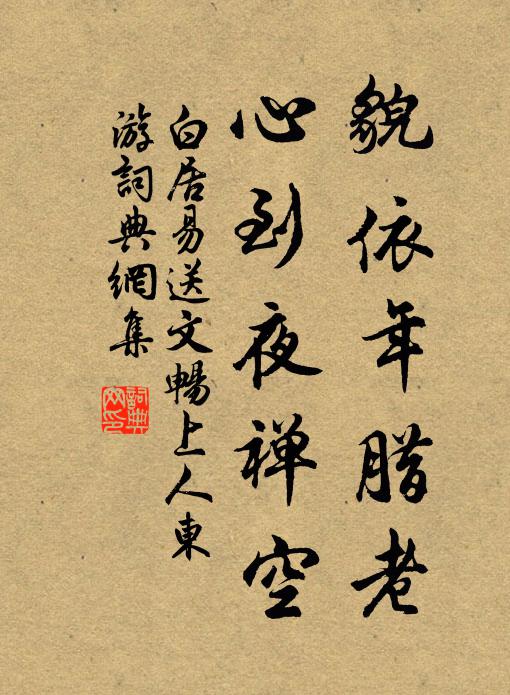 貌依年腊老
心到夜禅空
白居易送文暢上人東
游詞典網集
詞典
网印